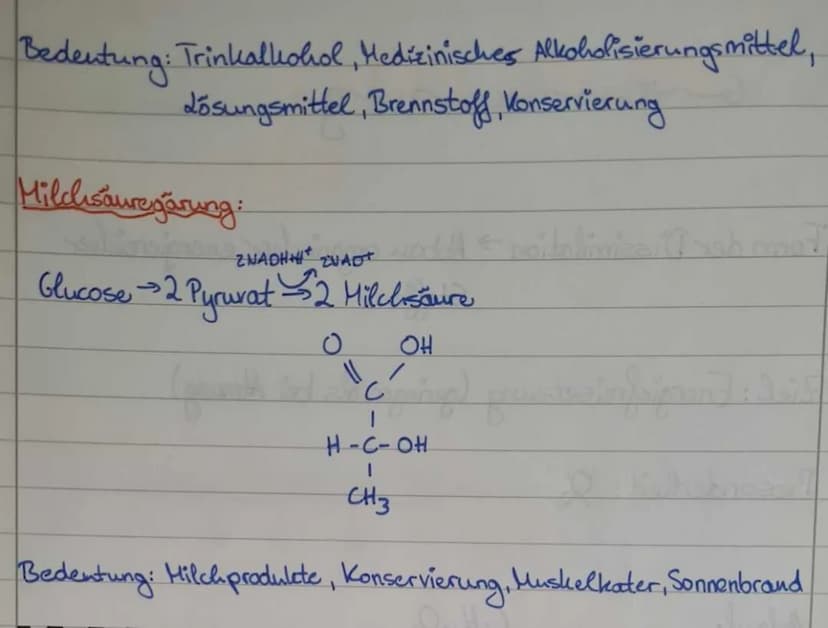 Bedeutung: Trinkalkohol, Medizinisches Alkoholisierungsmittel,
Lösungsmittel, Brennstoff, Konservierung
Milchsäuregärung:
2NADH+H⁺ 2NAD⁺
Glucose → 2 Pyruvat → 2 Milchsäure
O OH
C
H-C-OH
CH₃
Bedeutung: Milchprodukte, Konservierung, Muskelkater, Sonnenbrand